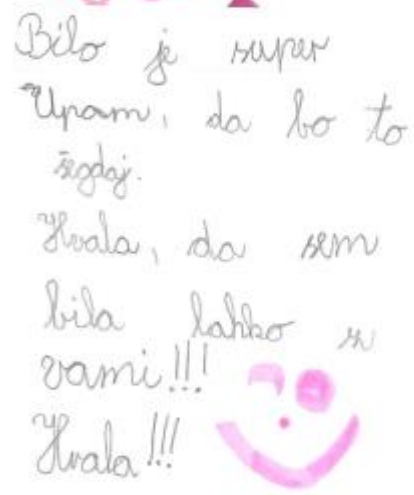 Bilo je super
Upam, da bo to
šegdaj.
Hvala, da sem
bila lahko z
vami!!!
Hvala!!!